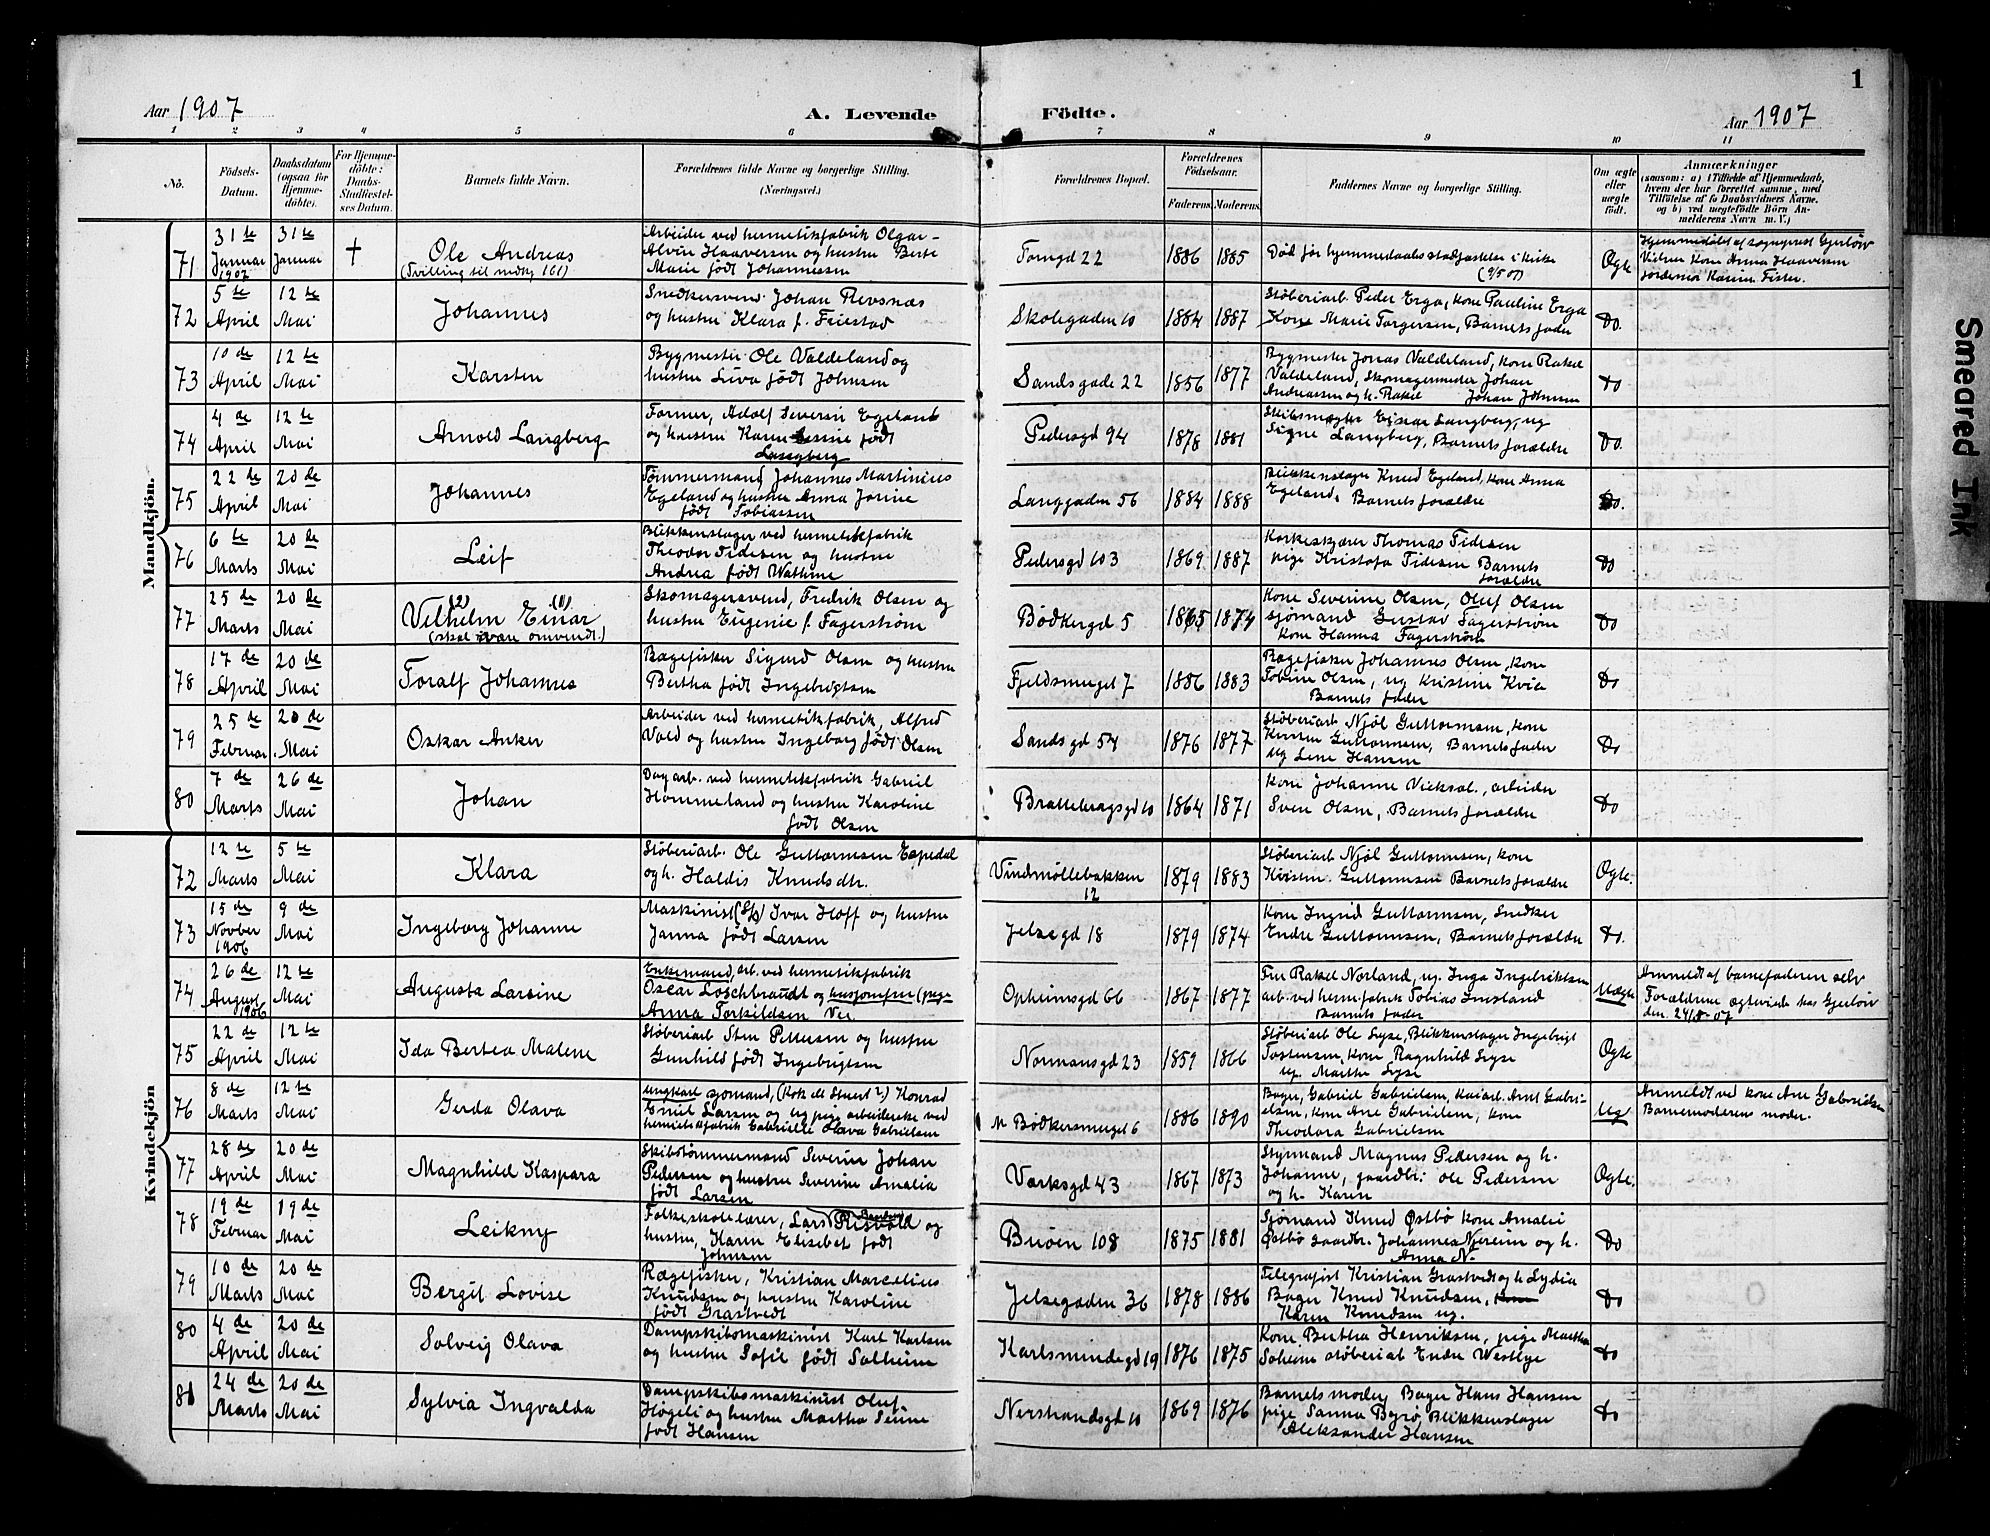 1
Aar 1907 A. Levende Födte. Aar 1907
1 2 3 4 5 6 7 8 9 10 11
No. Födsels-Datum. Daabsdatum (ogsaa for Hjemmedöbte). For Hjemmedöbte: Daabs-Stadfæstelses Datum. Barnets fulde Navn. Forældrenes fulde Navne og borgerlige Stilling. (Næringsvei.) Forældrenes Bopæl. Forældrenes Födselsaar. Faderens Moderens Faddernes Navne og borgerlige Stilling. Om ægte eller uægte födt. Anmærkninger (saasom: a) i Tilfælde af Hjemmedaab, hvem der har forrettet samme, med Tilföielse af to Daabsvidners Navne. og b) ved uægtefödte Börn Anmelderens Navn m. V.)
Mandkjön.
71 31te Januar 1907 31te Januar † Ole Andreas (Tvilling til 161) Arbeider ved hermetikfabrik Olgar Alvin Haaversen og hustru Berte Marie født Johannessen Torvgd 22 1886 1885 Død før hjemmedaabs stadfæstelse i kirke (9/5 07) Ægte Hjemmedøbt af sogneprest Gjerløw Vidner Kone Anna Haaversen Jordemor Karine Fister.
72 5te April 12te Mai Johannes Snedkersvend Johan Revsnæs og hustru Klara f. Feiestad Skolegaden 10 1884 1887 Støberiarb. Peder Erga, kone Pauline Erga Kone Marie Torgersen, Barnets fader Do.
73 10de April 12te Mai Karsten Bygmester Ole Valdeland og hustru Siva født Johnsen Sandsgade 22 1856 1877 Bygmester Jonas Valdeland, kone Rakel Valdeland, Skomagermester Johan Andreassen og h. Rakel Johan Johnsen Do
74 4de April 12te Mai Arnold Langberg Former, Adolf Severin Egeland og hustru Karen født Langberg Pedersgd 94 1878 1881 Einar Langberg, ug Signe Langberg, Barnets forældre Do.
75 22de April 20de Mai Johannes Tømmermand, Johannes Martinius Egeland og hustru Anna Jorine født Tobiassen Langgaden 56 1884 1888 Blikkenslager Knud Egeland, kone Anna Egeland, Barnets forældre Do.
76 6te Marts 20de Mai Leif Blikkenslager ved hermetikfabrik Theodor Tidesen og hustru Andrea født Wathne Pedersgd 103 1869 1887 Korkeskjærer Thomas Tidesen pige Kristofa Tidesen Barnets forældre Do
77 25de Marts 20de Mai Vilhelm (2) Einar (1) (skal være omvendt.) Skomagersvend, Fredrik Olsen og hustru Eugenie f. Fagerstrøm Bødkergd 5 1865 1874 Kone Severine Olsen, Oluf Olsen sjømand Gustav Fagerstrøm kone Hanna Fagerstrøm Do
78 17de April 20de Mai Toralf Johannes Bagefisker Sigurd Olsen og hustru Bertha født Ingebrigtsen Fjeldsmuget 7 1886 1883 Bagefisker Johannes Olsen, kone Tobine Olsen, ug Kristine Kvie Barnets fader Do
79 25de Februar 20de Mai Oskar Anker Arbeider ved hermetikfabrik, Alfred Vold og hustru Ingeborg født Olsen Sandsgd 54 1876 1877 Støberiarb Njøl Guttormsen, kone Kirsten Guttormsen, Barnets fader ug Lene Hansen Do
80 7de Marts 26de Mai Johan Dag arb. ved hermetikfabrik Gabriel Hommeland og hustru Karoline født Olsen Brattebragsgd 10 1864 1871 Kone Johanne Viksal., arbeider Sven Olsen, Barnets forældre Do
Kvindekjön
72 12te Marts 5te Mai Klara Støberiarb. Ole Guttormsen Espedal og h. Haldis Knudsdtr. Vindmøllebakken 12 1879 1883 Støberiarb Njøl Guttormsen, kone Kirstin Guttormsen Barnets forældre Ægte.
73 15de Novber 1906 9de Mai Ingeborg Johanne Maskinist (S/S) Ivar Hoff og hustru Janna født Larsen Jelsegd 18 1879 1874 Kone Ingrid Guttormsen, Snedker Endre Guttormsen, Barnets forældre Do.
74 26de August 1906 12te Mai Augusta Larsine Enkemand, arb. ved hermetikfabrik Oscar Loschbrandt og husjomfru (pige Anna Torkildsen Vee. Opheimsgd 66 1867 1877 Fru Rakel Norland, ug. Inga Ingebriktsen arb. ved hermefabrik Tobias Imsland Barnets fader Uægte Anmeldt af barnefaderen selv Forældrene ægteviede hos Gjerløw den 24/8-07
75 22de April 12te Mai Ida Bertea Malene Støberiarb Sten Pettersen og hustru Gunhild født Ingebrigtsen Normansgd 23 1859 1866 Støberiarb Ole Lyse, Blikkenslager Ingebrigt Tostensen, Kone Ragnhild Lyse ug. Marthe Lyse Ægte
76 8de Marts 12te Mai Gerda Olava Ungkarl sjømand, (Kok el Stuert?) Konrad Emil Larsen og ug pige arbeiderske ved hermetikfabrik Gabrielle Olava Gabrielsen N Bødkersmuget 6 1886 1890 Bager, Gabriel Gabrielsen, Kaiarb. Arnt Gabrielsen, kone Ane Gabrielsen, kone Theodora Gabrielsen Ug Anmeldt ved kone Ane Gabrielsen Barnemoderens moder.
77 28de April 20de Mai Magnhild Kaspara Skibstømmermand Severin Johan Pedersen og hustru Severine Amalia født Larsen Værksgd 43 1867 1873 Styrmand Magnus Pedersen og h. Johanne, gaardbr: Ole Pedersen og h. Karen Ægte.
78 19de Februar 19de Mai Leikny Folkeskolelærer, Lars Risvold og hustru, Karen Elisebet født Johnsen Buøen 108 1875 1881 Sjømand Knud Østbø kone Amalie Østbø Gaardbr. Johannes Njereim og h. Anna N. Do
79 10de Marts 20de Mai Bergit Lovise Rægefisker, Kristian Marcelius Knudsen og hustru Karoline født Grastvedt Jelsegaden 36 1878 1886 Telegrafist Kristian Grastvedt og h Lydia Bager Knud Knudsen, Karen Knudsen ug. Do
80 4de April 20de Mai Solveig Olava Dampskibsmaskinist Karl Karlsen og hustru Sofie født Solheim Karlsmindegd 19 1876 1875 Kone Bertha Henriksen, pige Martha Soheim støberiarb Endre Westlye Do
81 24de Marts 20de Mai Sylvia Ingvalda Dampskibsmaskinist Oluf Høgeli og hustru Martha Senne født Hansen Nerstrandsgd 10 1869 1876 Barnets moder, Bager Hans Hansen pige Sanna Byrø, Blikkenslager Aleksander Hansen Do
Smeared Ink